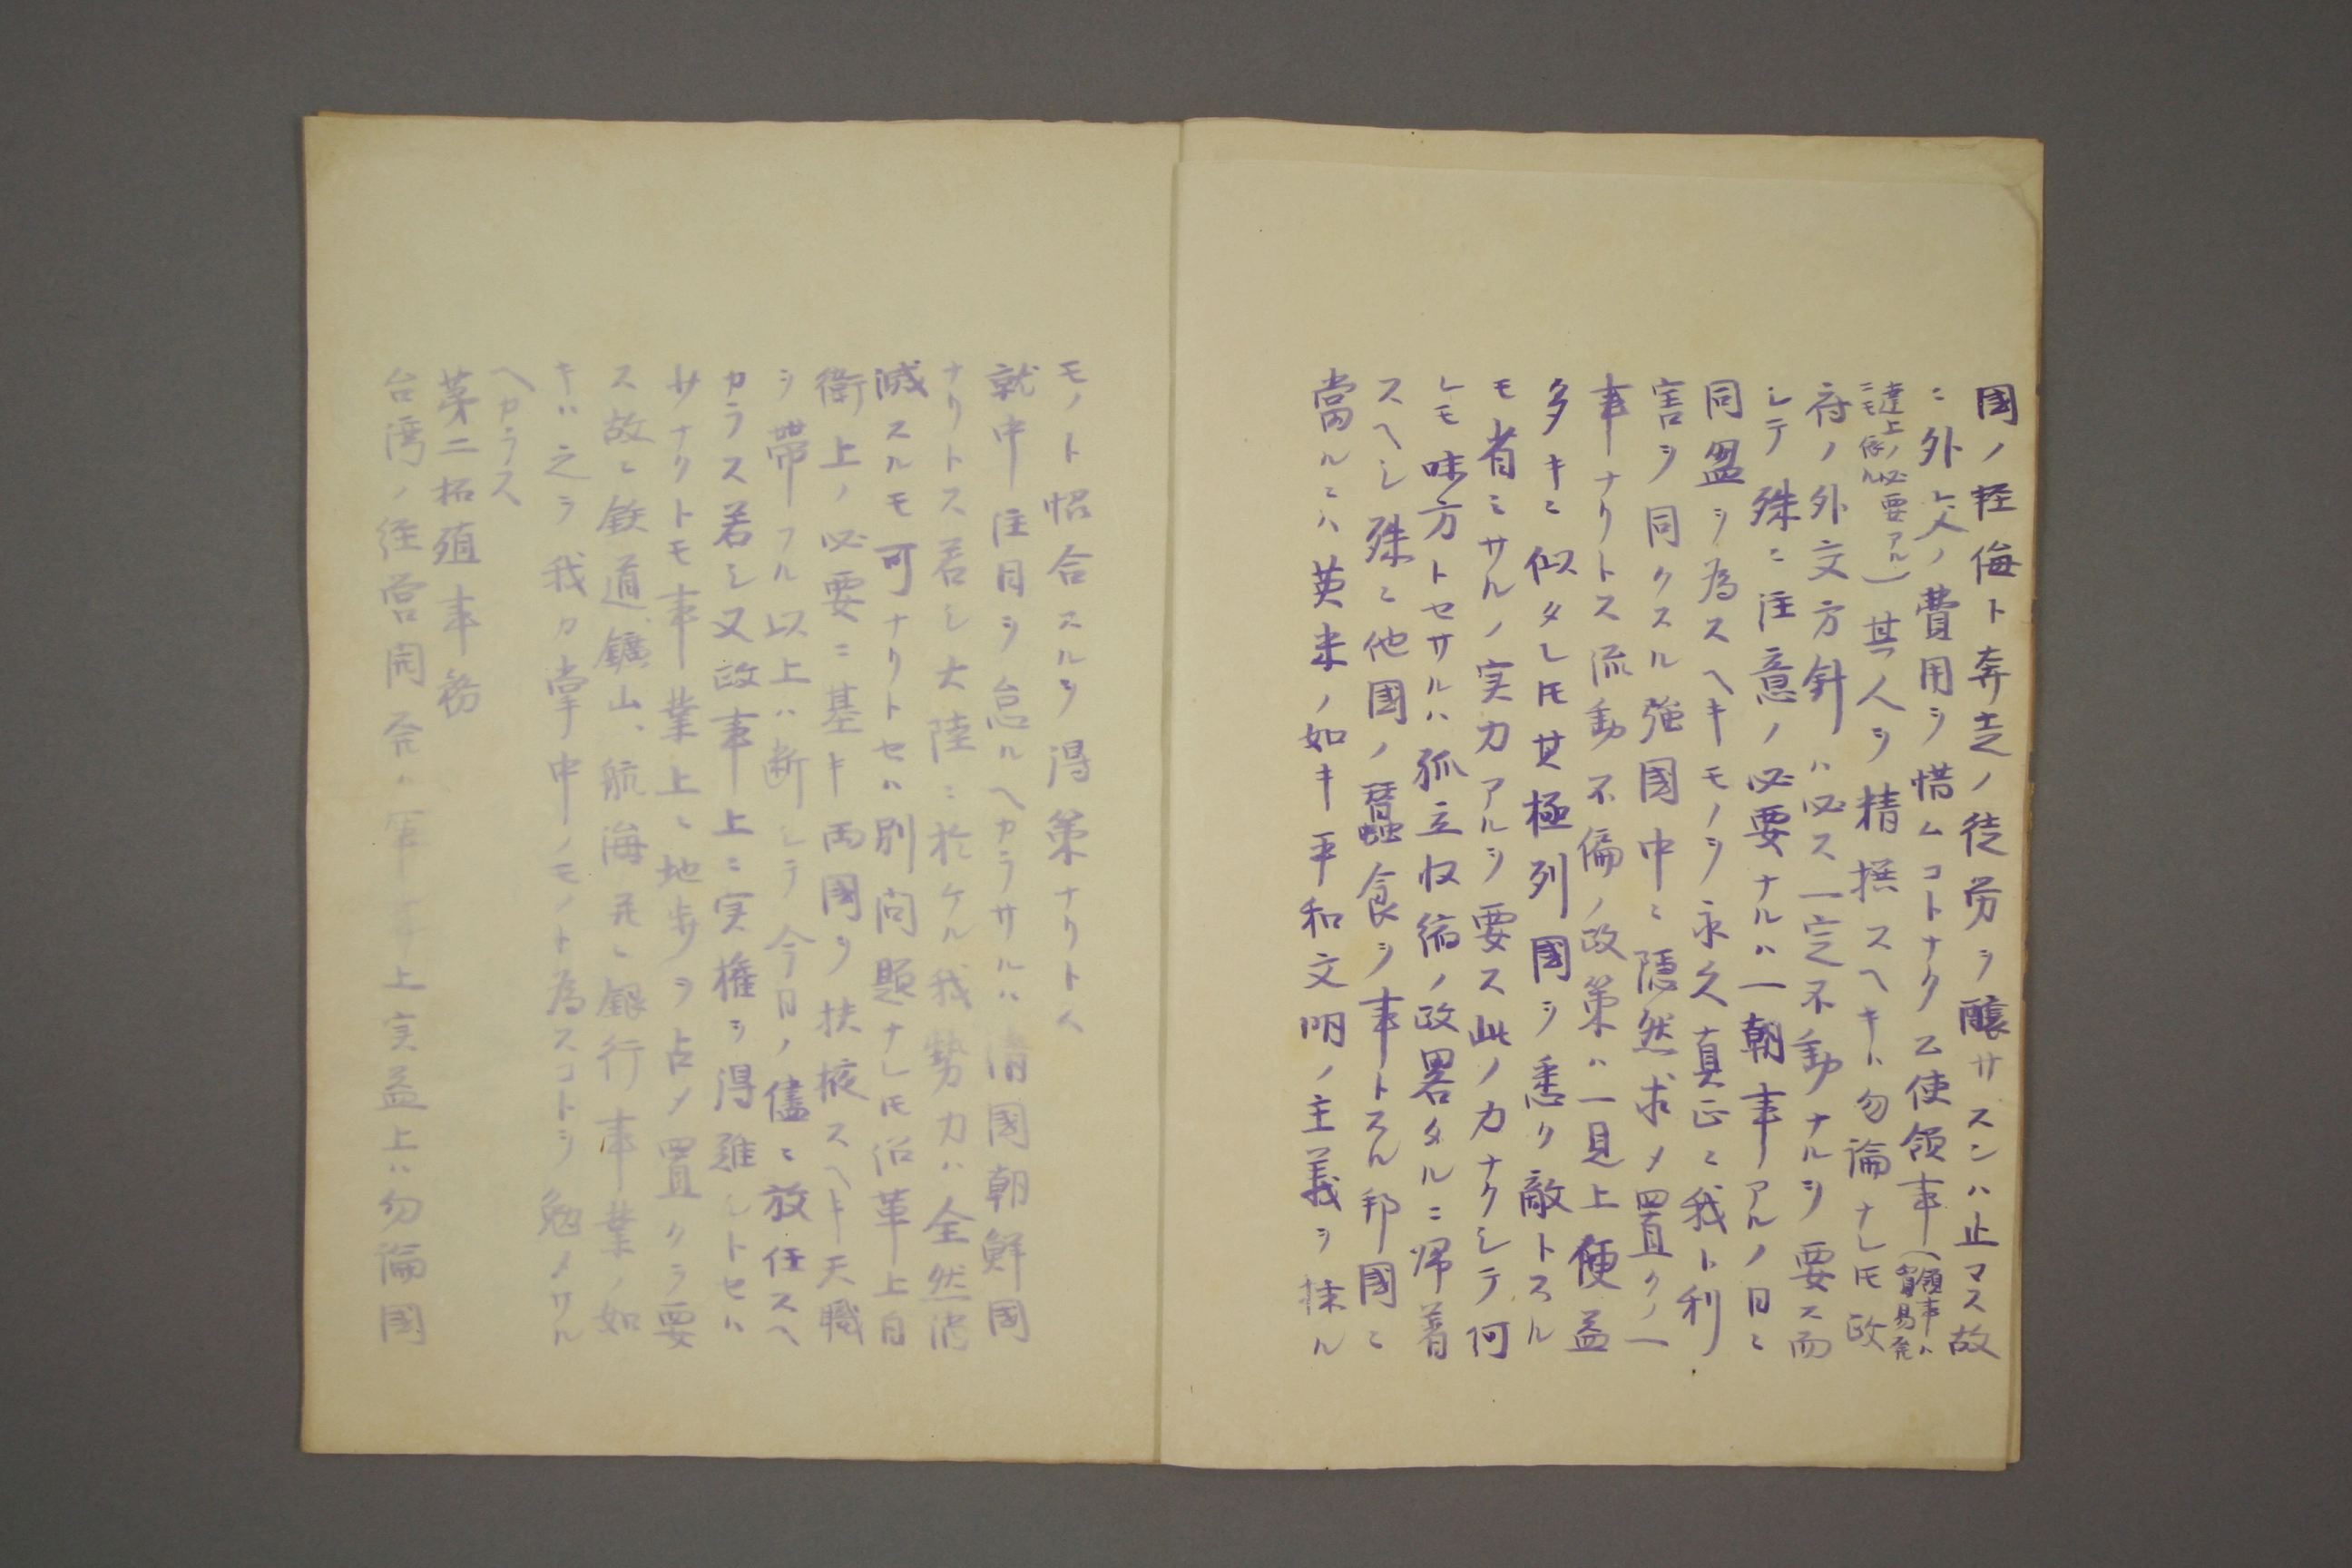 國ノ軽侮ト奔走ノ徒労ヲ醸サスンハ止マス故
ニ外交ノ費用ヲ惜ムコトナク公使領事(領事ハ貿易発
達上ノ必要アルニモ依ル)其人ヲ精撰スヘキハ勿論ナレ𪜈政
府ノ外交方針ハ必ス一定不動ナルヲ要ス而
シテ殊ニ注意ノ必要ナルハ一朝事アルノ日ニ
同盟ヲ為スヘキモノヲ永久真正ニ我ト利
害ヲ同クスル強國中ニ隠然求メ置クノ一
事ナリトス流動不偏ノ政策ハ一見上便益
多キニ似タレ𪜈其極列國ヲ悉ク敵トスル
モ省ミサルノ実力アルヲ要ス此ノ力ナクシテ何
レモ味方トセサルハ孤立収縮ノ政畧タルニ帰着
スヘシ殊ニ他國ノ蚕食ヲ事トスル邦國ニ
當ルニハ英米ノ如キ平和文明ノ主義ヲ採ル
モノト恊合スルヲ得策ナリトス
就中注目ヲ怠ルヘカラサルハ清國朝鮮國
ナリトス若シ大陸ニ於ケル我勢力ハ全然消
滅スルモ可ナリトセハ別問題ナレ𪜈沿革上自
衛上ノ必要ニ基キ両國ヲ扶掖スヘキ天職
ヲ帯フル以上ハ断シテ今日ノ儘ニ放任スヘ
カラス若シ又政事上ニ実権ヲ得難シトセハ
サナクトモ事業上ニ地歩ヲ占メ置クヲ要
ス故ニ鉄道、鑛山、航海并ニ銀行事業ノ如
キハ之ヲ我カ掌中ノモノト為スコトヲ勉メサル
ヘカラス
第二拓殖事務
台湾ノ経営開発ハ軍事上実益上ハ勿論國